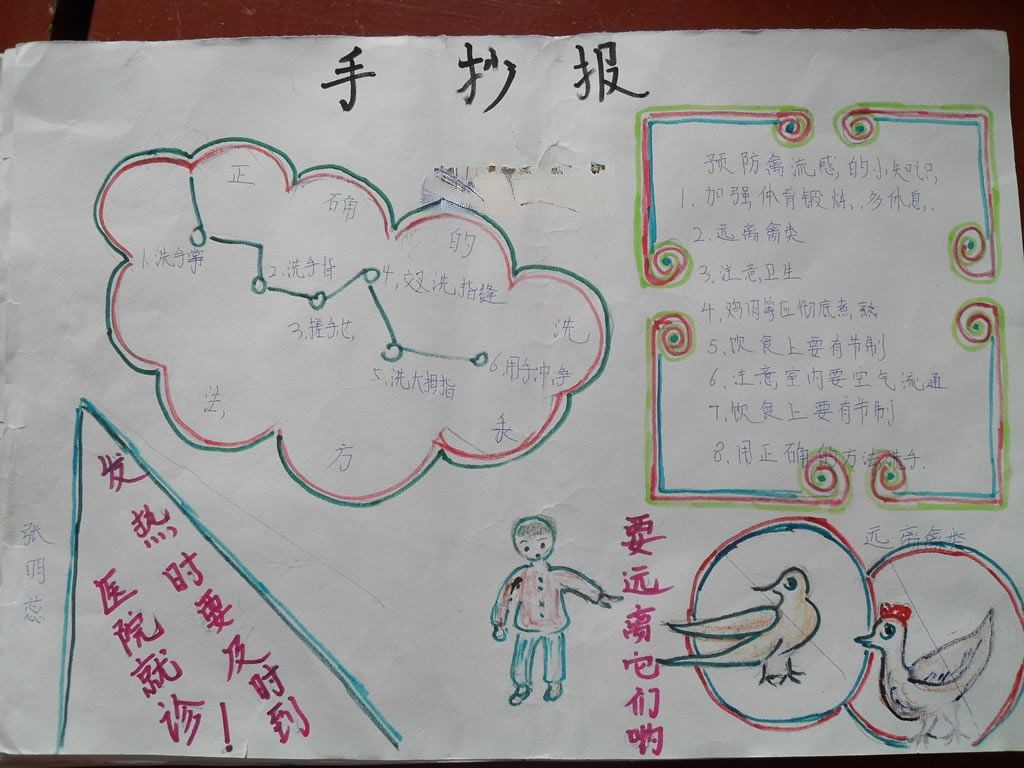 手抄报
正确的洗手方法
1.洗手掌
2.洗手背
3.搓手心
4.交叉洗指缝
5.洗大拇指
6.用手冲净
预防禽流感的小知识
1.加强体育锻炼,多休息.
2.远离禽类
3.注意卫生
4.鸡肉等应彻底煮熟
5.饮食上要有节制
6.注意室内要空气流通
7.饮食上要有节制
8.用正确的方法洗手.
张明蕊
发热时要及时到
医院就诊!
要远离它们哟
远离禽类